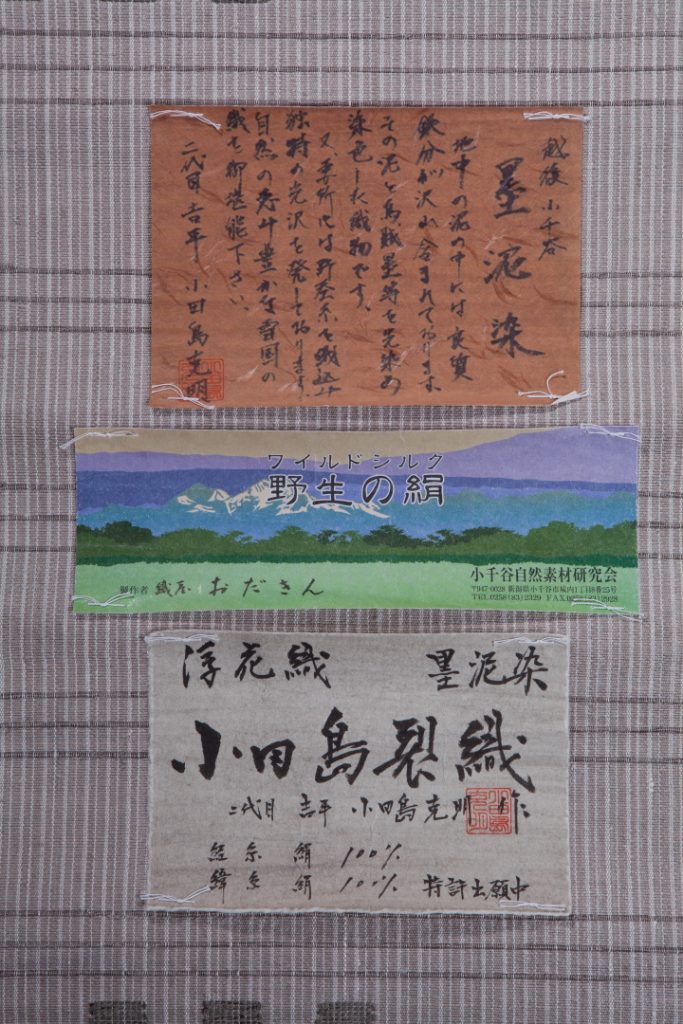 越後 小千谷
墨泥染
地中の泥の中には良質
鉄分が沢山含まれております
その泥と烏賊墨等を先染め
染色した織物です。
又、要所には野蚕糸を織込み
独特の光沢を発しております。
自然の恵み豊かな雪国の
織を御堪能下さい。
二代目 吉平 小田島克明
ワイルドシルク
野生の絹
製作者 織屋 おださん
小千谷自然素材研究会
〒947-0028 新潟県小千谷市城内1丁目8番25号
TEL.0258(83)2329 FAX.0258(83)2928
浮花織 墨泥染
小田島裂織
二代目 吉平 小田島克明 作
経糸 絹 100%
緯糸 絹 100% 特許出願中